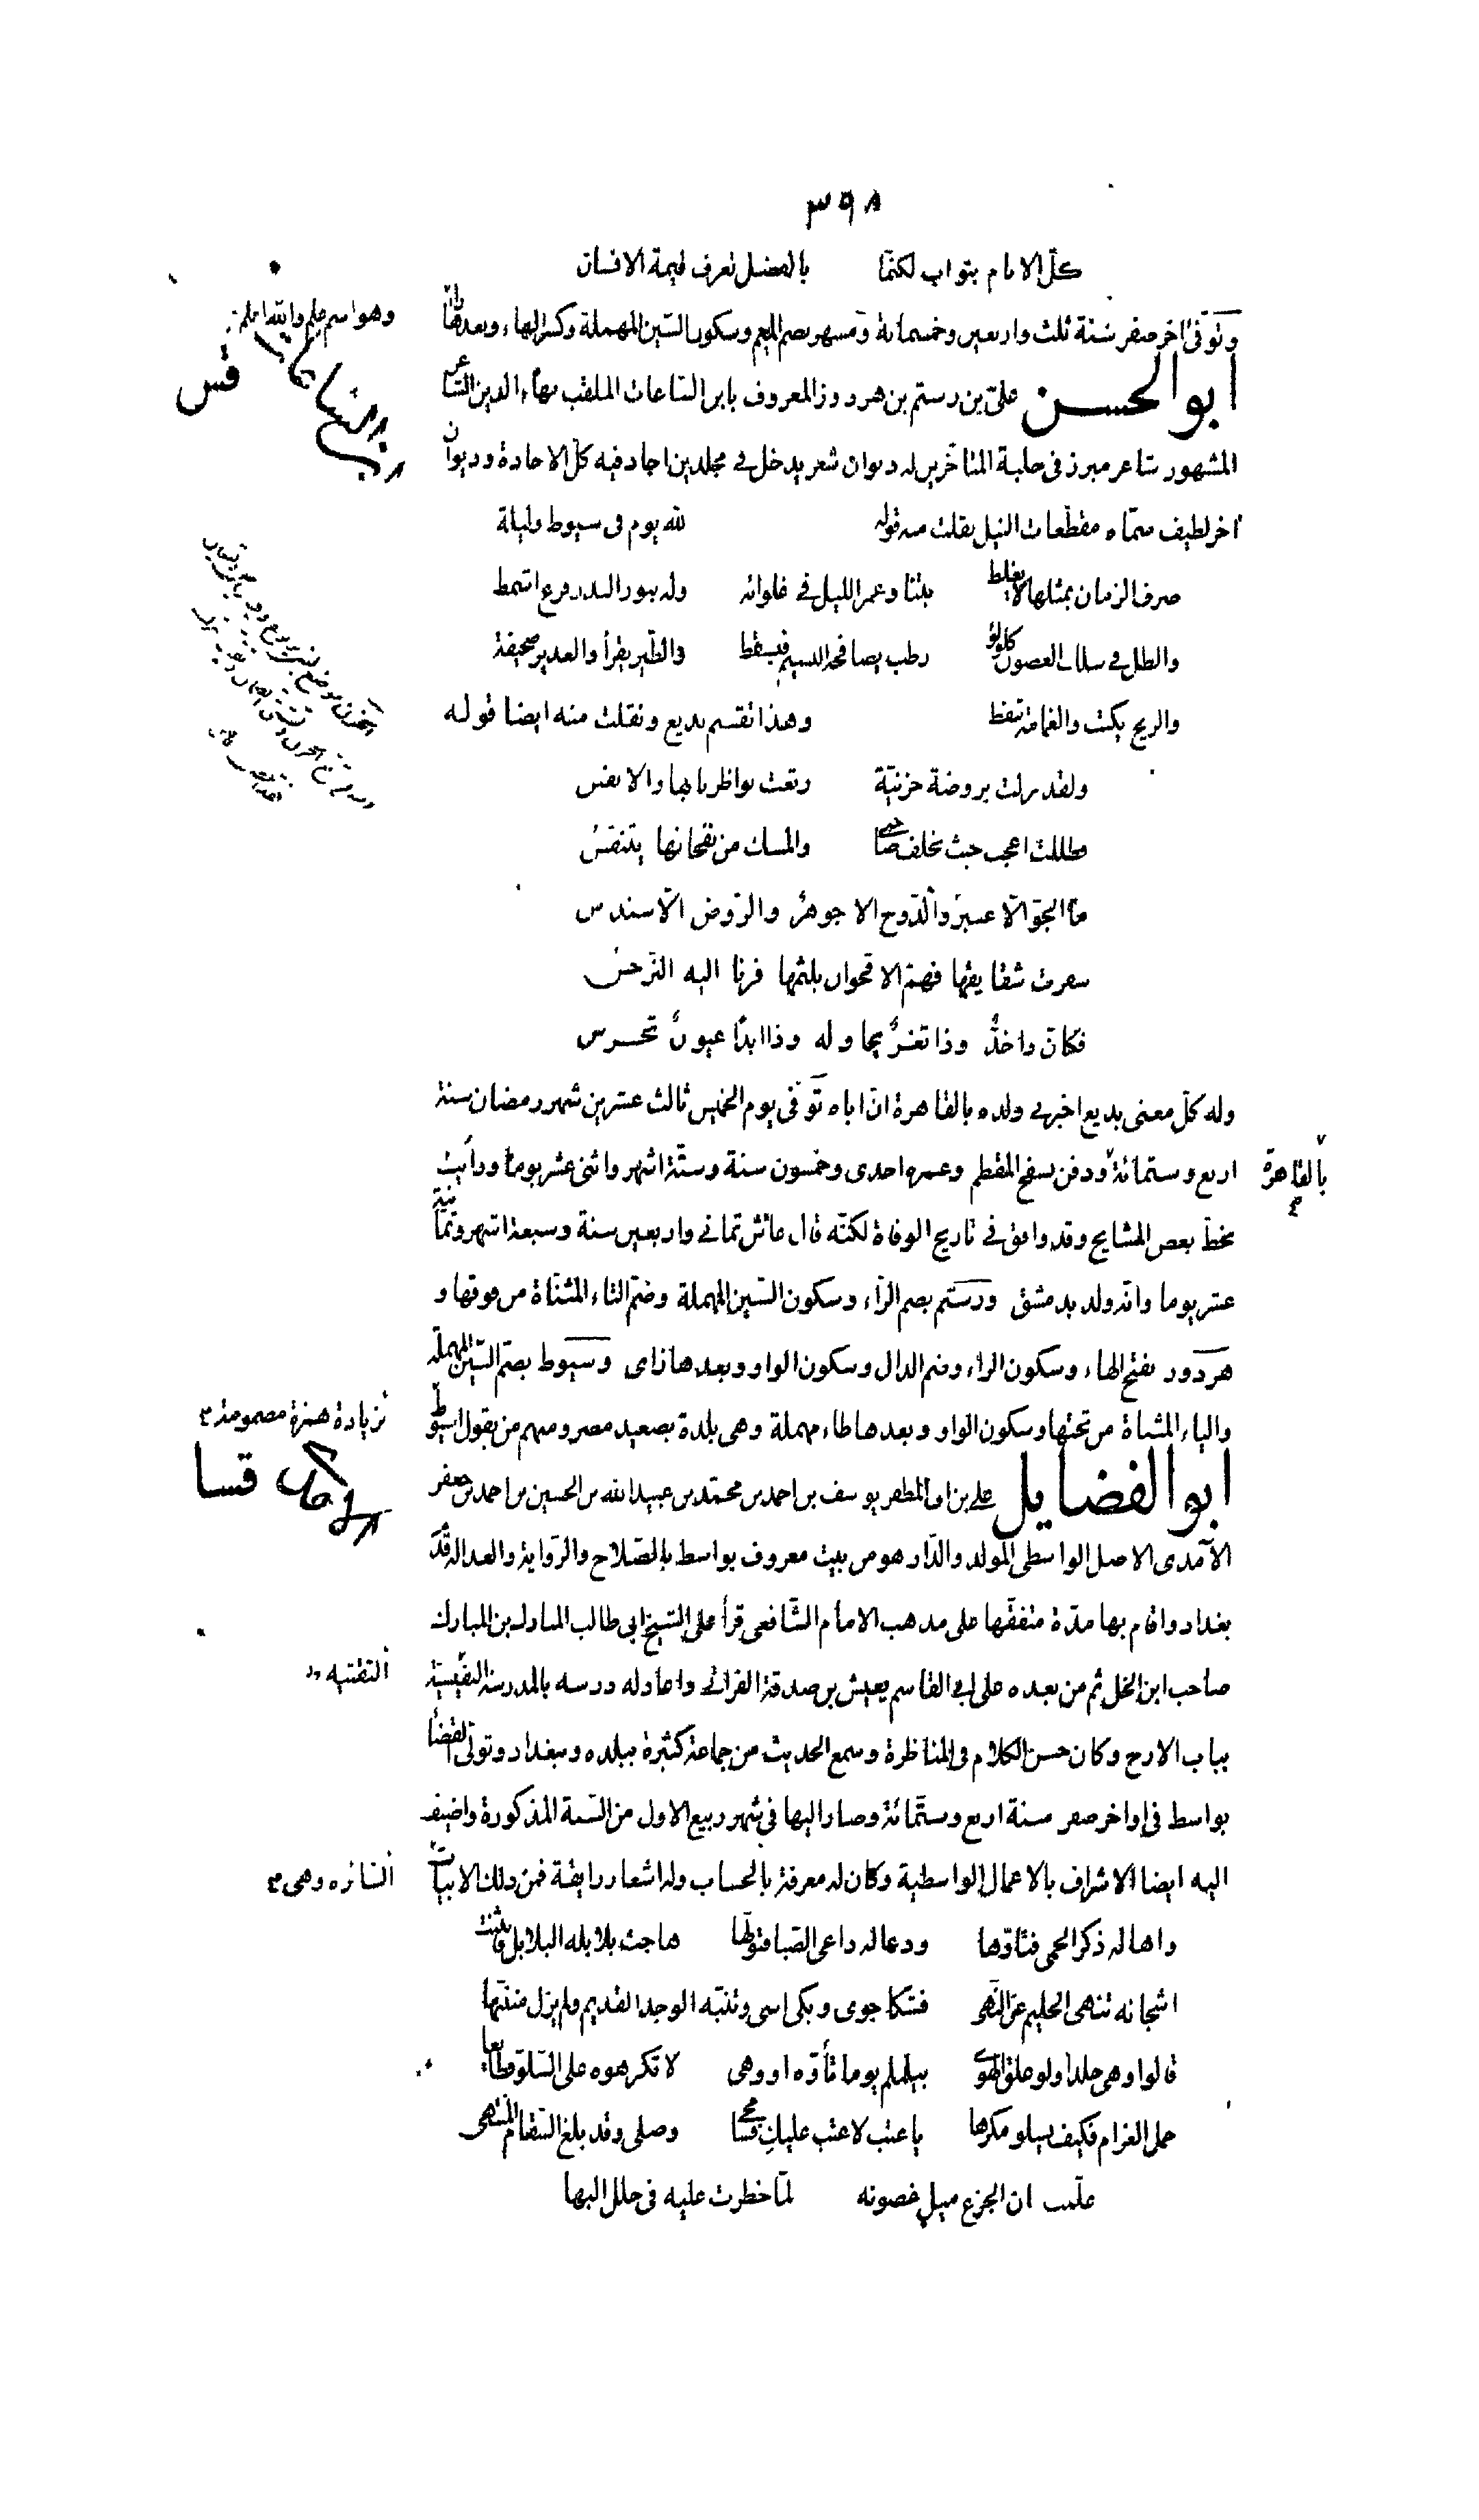 ٣٩٨
كلّ الانام بنواب لكنما بالفضل تعرف قيمة الانسان
وتوفى اخر صفر سنة ثلث واربعين وخمسمائة ومسهر بضم الميم وسكون السين المهملة وكسر الهاء وبعدها راء
وهو اسم علم والله اعلم
ابو الحسن على بن رستم بن هردوز المعروف بابن الساعاتى الملقب بهاء الدين الشاعر
ابن الساعاتى قس
المشهور شاعر مبرز فى حلبة المتاخرين له ديوان شعر يدخل فى مجلدين اجاد فيه كل الاجادة وديوان
اخر لطيف سمّاه مقطّعات النيل نقلت منه قوله لله يوم فى سيوط وليلة
صرف الزمان بمثلها لا يغلط بتنا وعمر الليل فى غلوائه وله بنور البدر فرع اشمط
والطل فى سلك الغصون كلؤلؤ رطب يصافحه النسيم فيسقط والطّير يقرأ والغدير صحيفة
والريح يكتب والغمامة تنقط وهذا تقسيم بديع ونقلت منه ايضا قوله
ولقد نزلت بروضة حزنيّة رتعت نواظرنا بها والانفس
فظللت اعجب حيث يحلف صاحبى والمسك من نفحاتها يتنفس
ما الجوّ الّا عنبر والدّوح الا جوهر والرّوض الّا سندس
سفرت شقايقها فهمّ الاقحوان بلثمها فرنا اليه النرجس
فكانّ ذا خدّ وذا ثغر يحاوله وذا ابدًا عيون تحرس
وله كل معنى بديع اخبرنى ولده بالقاهرة انّ اباه توفى يوم الخميس ثالث عشرين شهر رمضان سنة
اربع وستمائة ودفن بسفح المقطم وعمره احدى وخمسون سنة وستّة اشهر واثنى عشر يوما ورأيت
بالقاهرة
بخطّ بعض المشايخ وقد وافق فى تاريخ الوفاة لكنّه قال عاش ثمانى واربعين سنة وسبعة اشهر وثمانية
عشر يوما وانه ولد بدمشق ورستم بضم الرّاء وسكون السين المهملة وضمّ التاء المثنّاة من فوقها و
هردوز بفتح الهاء وسكون الراء وضم الدال وسكون الواو وبعدها زاى وسيوط بضمّ السّين المهملة
والياء المثناة من تحتها وسكون الواو وبعدها طاء مهملة وهى بلدة بصعيد مصر ومنهم من يقول اسيوط
بزيادة همزة مضمومة
ابو الفضايل على بن ابى المظفر يوسف بن احمد بن محمّد بن عبيد الله بن الحسين بن احمد بن جعفر
قسا
الآمدى الاصل الواسطى المولد والدّار هو من بيت معروف بواسط بالصّلاح والرّواية والعدالة قدم
بغداد واقام بها مدّة متفقّها على مذهب الامام الشّافعى قرأ على الشيخ ابى طالب المبارك بن المبارك
صاحب ابن الخل ثم من بعده على ابى القاسم يعيش بن صدقة الفراتى واعاد له درسه بالمدرسة
الثقتيه
بباب الازج وكان حسن الكلام فى المناظرة وسمع الحديث من جماعة كثيرة ببلده وببغداد وتولّى القضا
بواسط فى اواخر صفر سنة اربع وستّمائة وصار اليها فى شهر ربيع الاول من السّنة المذكورة واضيف
اليه ايضا الاشراف بالاعمال الواسطية وكان له معرفة بالحساب وله اشعار رايقة فمن ذلك الابيات
السائره وهى
واها له ذكر الحمى فتأوّها ودعا له داعى الصّبا فتولّها هاجت بلابله البلابل فانثنت
اشجانه تنهى الحليم عن النّهى فشكا جوى وبكى اسى وتنبّه الوجد القديم ولم يزل متنبّها
قالوا وهى جلدا ولو علق الهوى بيلملم يوما تأوّه او وهى لا تكرهوه على السّلوّ فطايعا
حمل الغرام فكيف يسلو مكرها يا عتب لا عتب عليك فسامحى وصلى وقد بلغ السّقام المنتهى
علّمت ان الجزع ميل غصونه لمّا خطرت عليه فى حلل البها